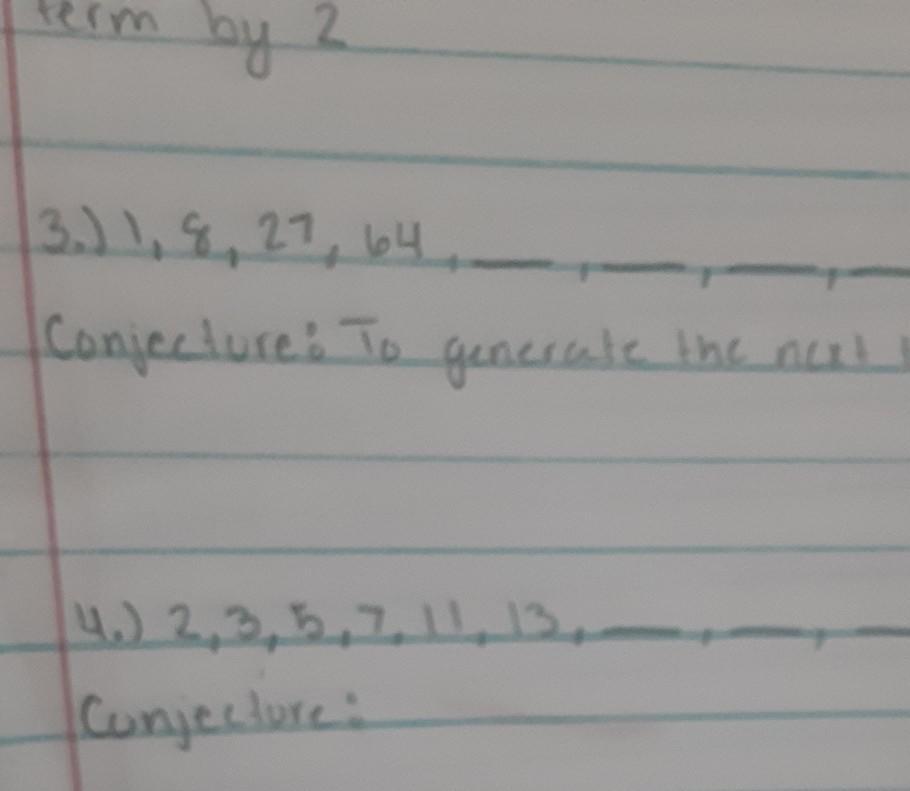 term by 2
3.) 1, 8, 27, 64, __, __, __, __
Conjecture: To generate the next
4.) 2, 3, 5, 7, 11, 13, __, __, __
Conjecture: